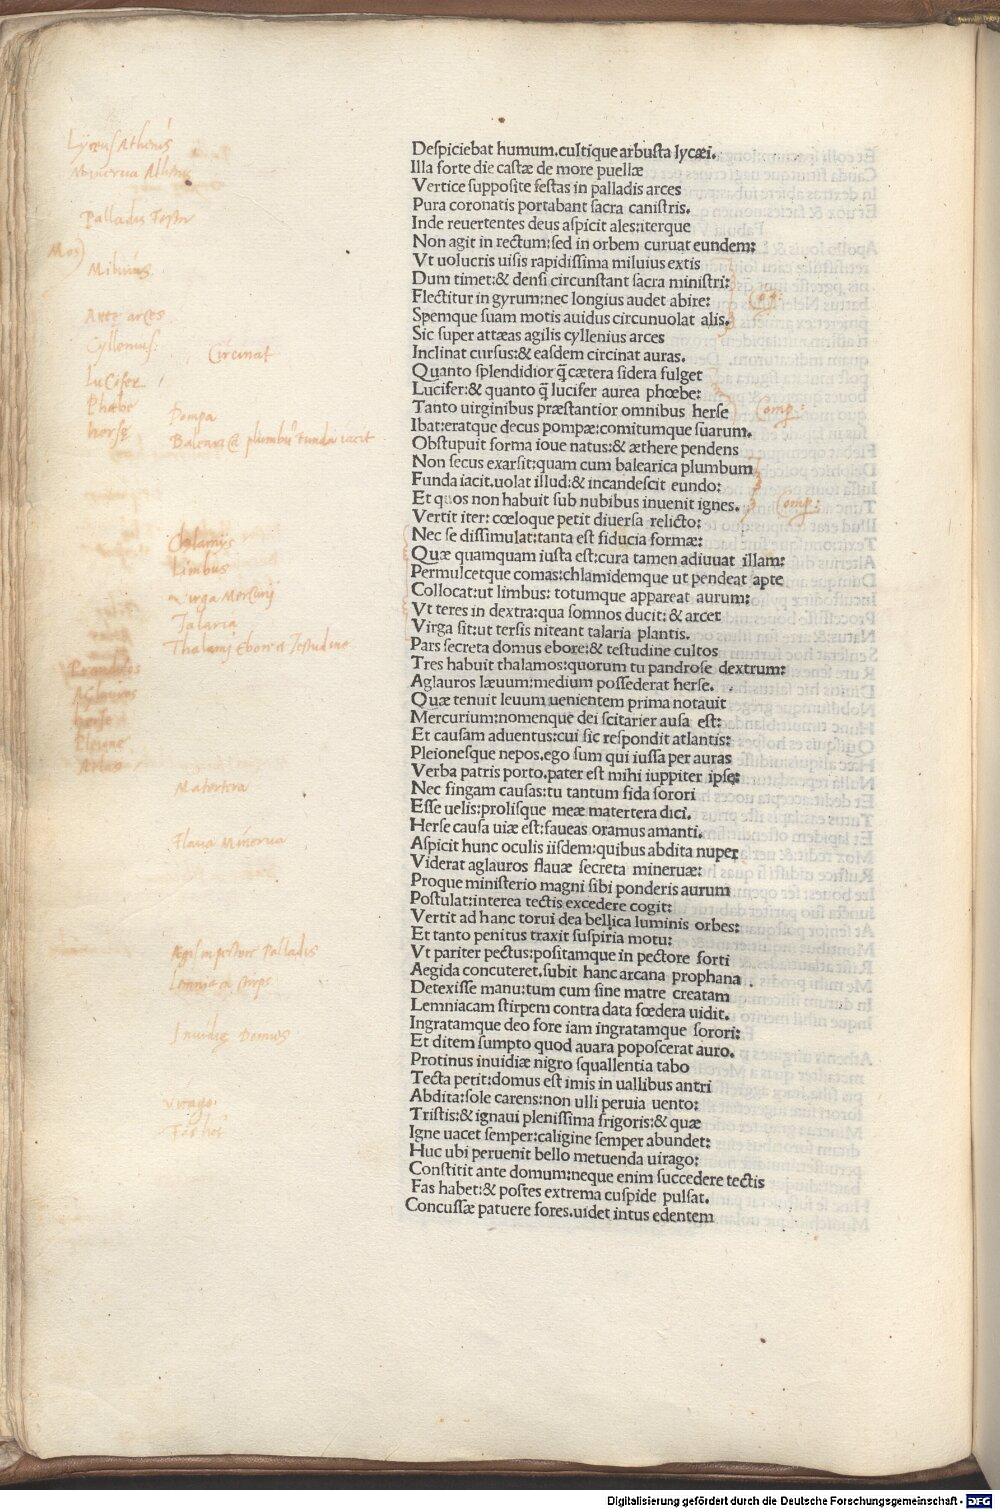 Lycæus Athenis
Minerua Athenis
Palladis Festor
Mos
Miluius
Ante arces
Cyllenius:
Circinat
Lucifer
Phœbe
herse
Pompa
Balearica plumbū funda iacit
Chlamys
Limbus
uirga Mercurij
Talaria
Thalami Ebore et Testudine
Prandrosos
Aglauros
herse
Pleione
Atlas
Matertera
Flaua Minerua
Aegis in pectore Palladis
Lemniaca stirps
Inuidię Domus
virago.
Deſpiciebat humum.cultique arbuſta lycæi.
Illa forte die caſtæ de more puellæ
Vertice ſuppoſite feſtas in palladis arces
Pura coronatis portabant ſacra caniſtris.
Inde reuertentes deus aſpicit ales:iterque
Non agit in rectum:ſed in orbem curuat eundem:
Vt uolucris uiſis rapidiſſima miluius extis
Dum timet:& denſi circunſtant ſacra miniſtri:
Flectitur in gyrum:nec longius audet abire:
Spemque ſuam motis auidus circunuolat alis.
Sic ſuper attæas agilis cyllenius arces
Inclinat curſus:& eaſdem circinat auras.
Quanto ſplendidior q̃ cætera ſidera fulget
Lucifer:& quanto q̃ lucifer aurea phœbe:
Tanto uirginibus præſtantior omnibus herſe
Comp:
Ibat:eratque decus pompæ:comitumque ſuarum.
Obſtupuit forma ioue natus:& æthere pendens
Non ſecus exarſit:quam cum balearica plumbum
Funda iacit.uolat illud:& incandeſcit eundo:
Et quos non habuit ſub nubibus inuenit ignes.
Comp:
Vertit iter: cœloque petit diuerſa relicto:
Nec ſe diſſimulat:tanta eſt fiducia formæ:
Quæ quamquam iuſta eſt:cura tamen adiuuat illam:
Permulcetque comas:chlamidemque ut pendeat apte
Collocat:ut limbus: totumque appareat aurum:
Vt teres in dextra:qua ſomnos ducit: & arcet
Virga ſit:ut terſis niteant talaria plantis.
Pars ſecreta domus ebore:& teſtudine cultos
Tres habuit thalamos:quorum tu pandroſe dextrum:
Aglauros læuum:medium poſſederat herſe.
Quæ tenuit leuum uenientem prima notauit
Mercurium:nomenque dei ſcitarier auſa eſt:
Et cauſam aduentus:cui ſic reſpondit atlantis:
Pleioneſque nepos.ego ſum qui iuſſa per auras
Verba patris porto.pater eſt mihi iuppiter ipſe:
Nec fingam cauſas:tu tantum fida ſorori
Eſſe uelis:proliſque meæ matertera dici.
Herſe cauſa uiæ eſt:faueas oramus amanti.
Aſpicit hunc oculis iiſdem:quibus abdita nuper
Viderat aglauros flauæ ſecreta mineruæ:
Proque miniſterio magni ſibi ponderis aurum
Poſtulat:interea tectis excedere cogit:
Vertit ad hanc torui dea bellica luminis orbes:
Et tanto penitus traxit ſuſpiria motu:
Vt pariter pectus:poſitamque in pectore forti
Aegida concuteret.ſubit hanc arcana prophana
Detexiſſe manu:tum cum ſine matre creatam
Lemniacam ſtirpem contra data fœdera uidit.
Ingratamque deo fore iam ingratamque ſorori:
Et ditem ſumpto quod auara popoſcerat auro.
Protinus inuidiæ nigro ſquallentia tabo
Tecta petit:domus eſt imis in uallibus antri
Abdita:ſole carens:non ulli peruia uento:
Triſtis:& ignaui pleniſſima frigoris:& quæ
Igne uacet ſemper:caligine ſemper abundet:
Huc ubi peruenit bello metuenda uirago:
Conſtitit ante domum:neque enim ſuccedere tectis
Fas habet:& poſtes extrema cuſpide pulſat.
Concuſſæ patuere fores.uidet intus edentem
Digitalisierung gefördert durch die Deutsche Forschungsgemeinschaft - DFG